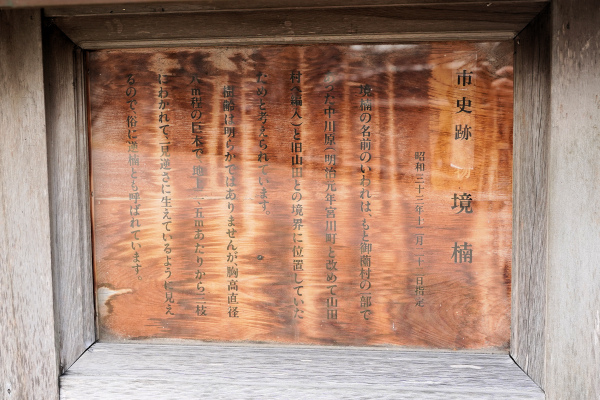 市史跡 境楠
昭和三十三年十二月二十一日指定
境楠の名前のいわれは、もと御薗村の一部で
あった中川原(明治元年宮川町と改めて山田
村へ編入)と旧山田との境界に位置していた
ためと考えられています。
樹齢は明らかではありませんが胸高直径
m程の巨木で、地上一・五mあたりから二枝
にわかれて、一見逆さに生えているように見え
るので、俗に逆楠とも呼ばれています。